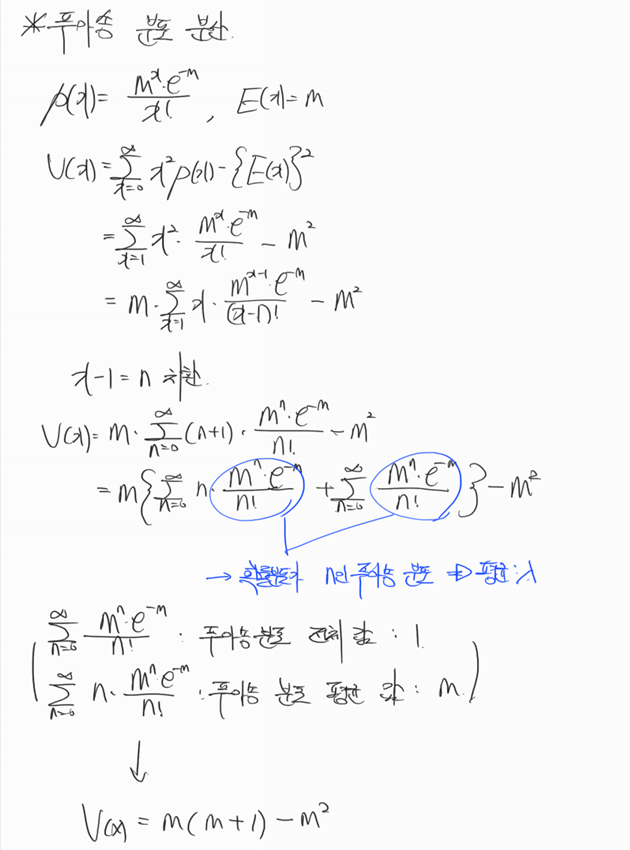 *푸아송 분포 분산.
p(x) = m^x·e^-m / x! , E(x) = m
V(x) = ∑_{x=0}^{∞} x² p(x) - {E(x)}²
= ∑_{x=1}^{∞} x² · m^x·e^-m / x! - m²
= m · ∑_{x=1}^{∞} x · m^{x-1}·e^-m / (x-1)! - m²
x-1 = n 치환.
V(x) = m · ∑_{n=0}^{∞} (n+1) · m^n·e^-m / n! - m²
= m { ∑_{n=0}^{∞} n · m^n·e^-m / n! + ∑_{n=0}^{∞} m^n·e^-m / n! } - m²
→ 확률변수가 n인 푸아송 분포 ⇒ 평균 : λ
∑_{n=0}^{∞} m^n·e^-m / n! : 푸아송 분포 전체 합 : 1.
∑_{n=0}^{∞} n · m^n e^-m / n! : 푸아송 분포 평균 값 : m.
↓
V(x) = m(m+1) - m²